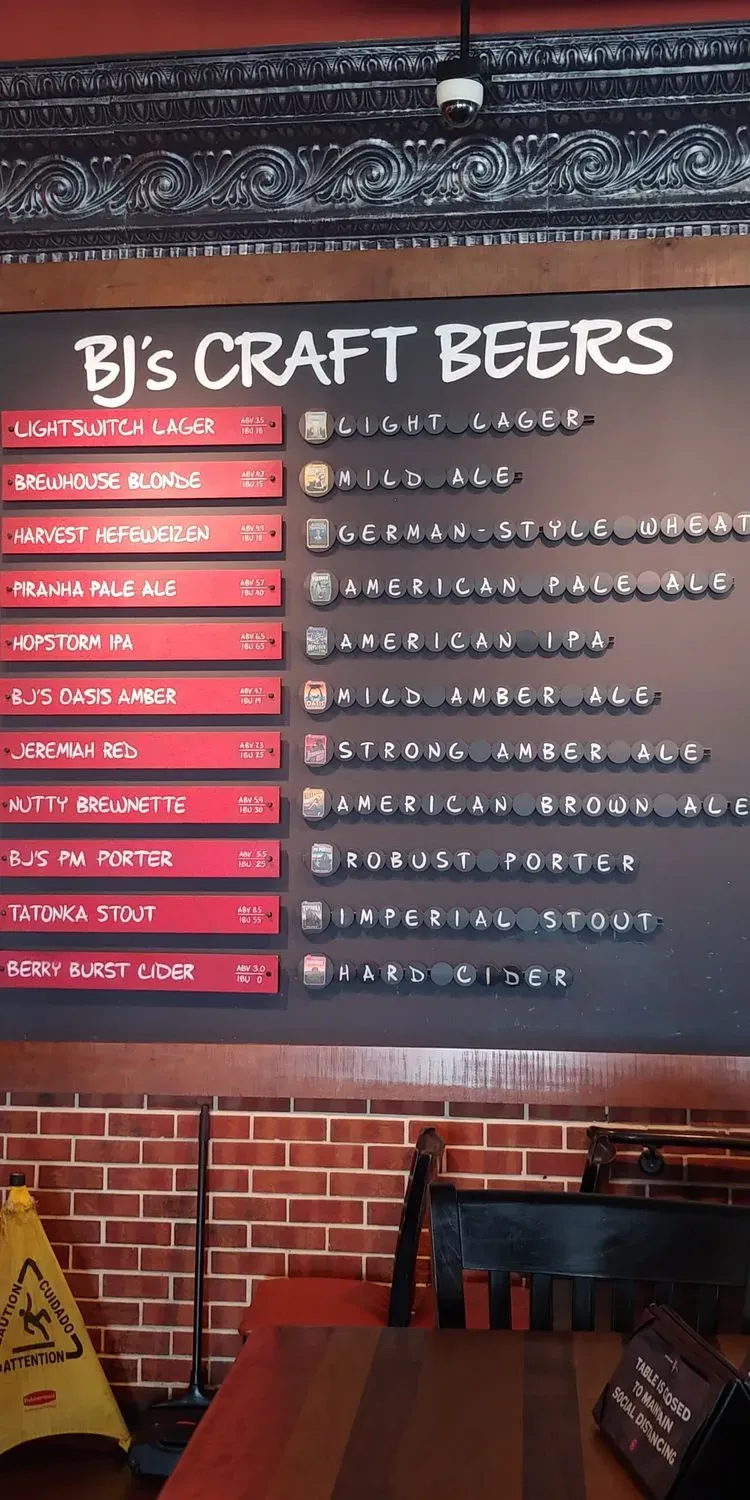 BJ's CRAFT BEERS
LIGHTSWITCH LAGER ABV 3.5 LIGHT LAGER
IBU 18
BREWHOUSE BLONDE ABV 4.7 MILD ALE
IBU 15
HARVEST HEFEWEIZEN ABV 4.9 GERMAN-STYLE WHEAT
IBU 18
PIRANHA PALE ALE ABV 5.7 AMERICAN PALE ALE
IBU 40
HOPSTORM IPA ABV 6.5 AMERICAN IPA
IBU 65
BJ'S OASIS AMBER ABV 4.7 OASIS MILD AMBER ALE
IBU 19
JEREMIAH RED ABV 7.3 STRONG AMBER ALE
IBU 25
NUTTY BREWNETTE ABV 5.9 AMERICAN BROWN ALE
IBU 30
BJ'S PM PORTER ABV 5.5 ROBUST PORTER
IBU 25
TATONKA STOUT ABV 8.5 TATONKA IMPERIAL STOUT
IBU 55
BERRY BURST CIDER ABV 3.0 HARD CIDER
IBU 0
CAUTION
CUIDADO
ATTENTION
Rubbermaid
TABLE IS CLOSED
TO MAINTAIN
SOCIAL DISTANCING